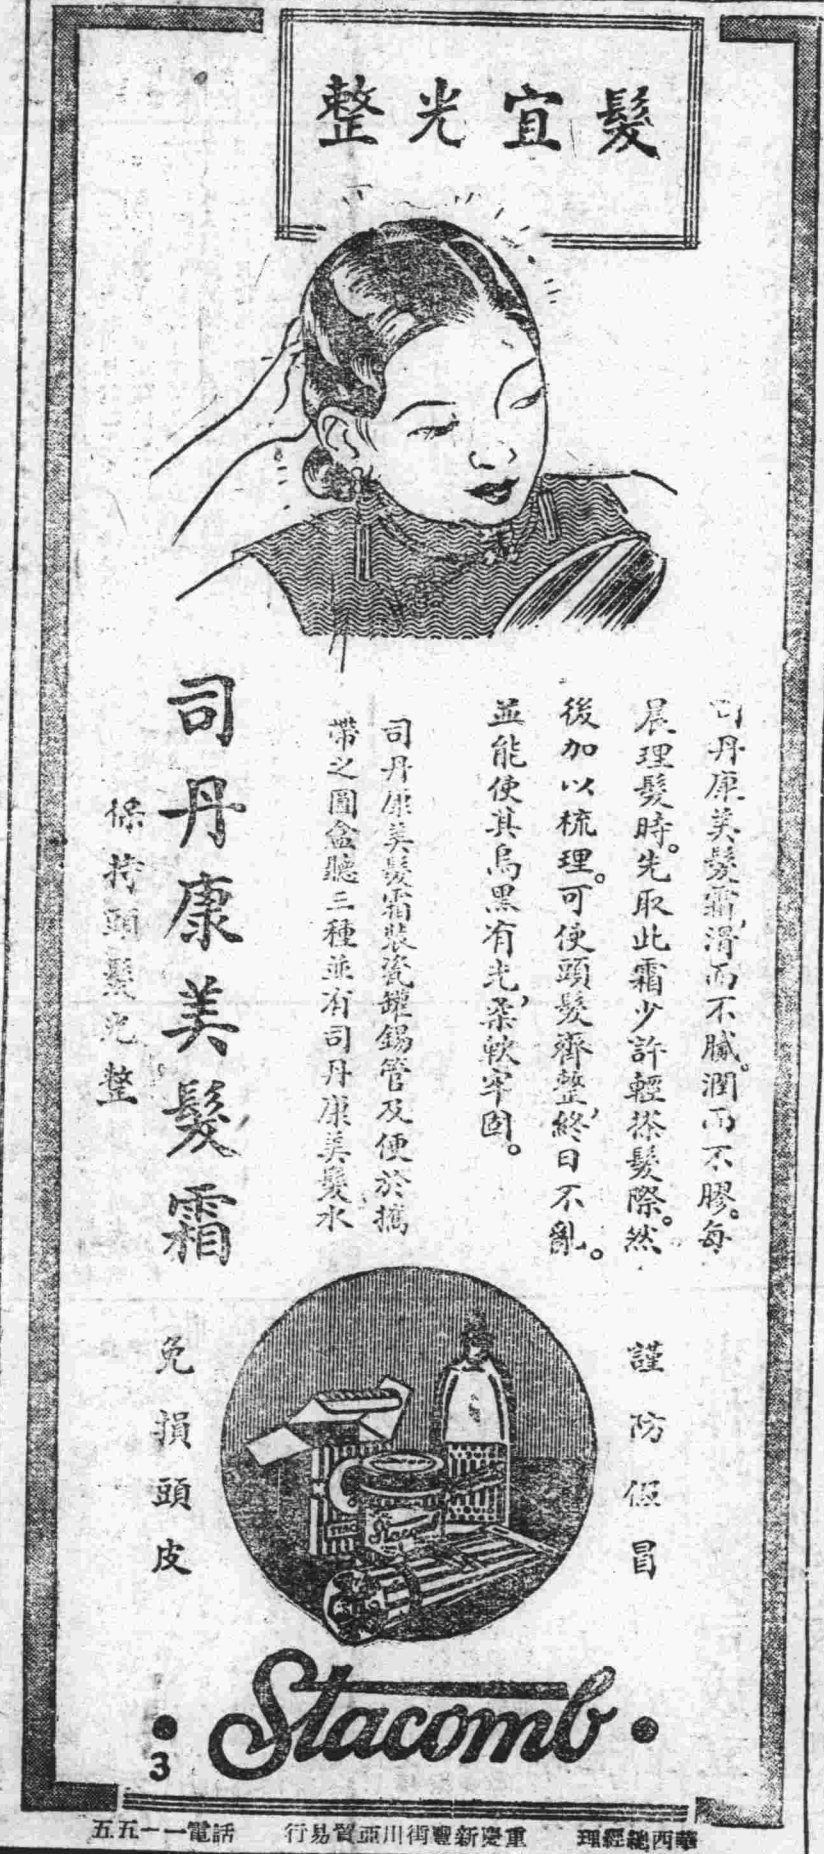 髮宜光整
司丹康美髮霜，滑而不膩。潤而不膠。每
晨理髮時。先取此霜少許輕搽髮際。然
後加以梳理。可使頭髮齊整，終日不亂。
並能使其烏黑有光，柔軟牢固。
司丹康美髮霜裝瓷罐錫管及便於攜
帶之圓盒聽三種並有司丹康美髮水
司丹康美髮霜
保持頭髮光整
謹防假冒
免損頭皮
Stacomb
Stacomb
3
華西總經理 重慶新豐街川亞貿易行 電話一一五五